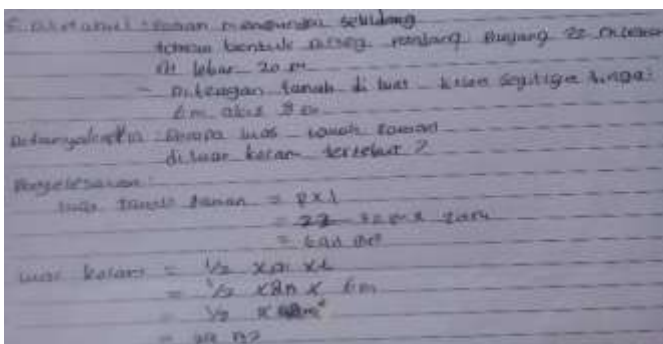 5. Diketahui : Paman mempunyai sebidang
taman bentuk perseg panjang panjang 32 m
di lebar 20 m
- Ditengah tanah di buat kolam segitiga tinggi
6m alas 8 m
Ditanyakan : Berapa luas tanah taman
diluar kolam tersebut ?
Penyelesaian :
luas tanah taman = p x l
= 32 m x 20 m
= 640 m²
luas kolam = 1/2 x a x t
= 1/2 x 8m x 6m
= 1/2 x 48m²
= 24 m²